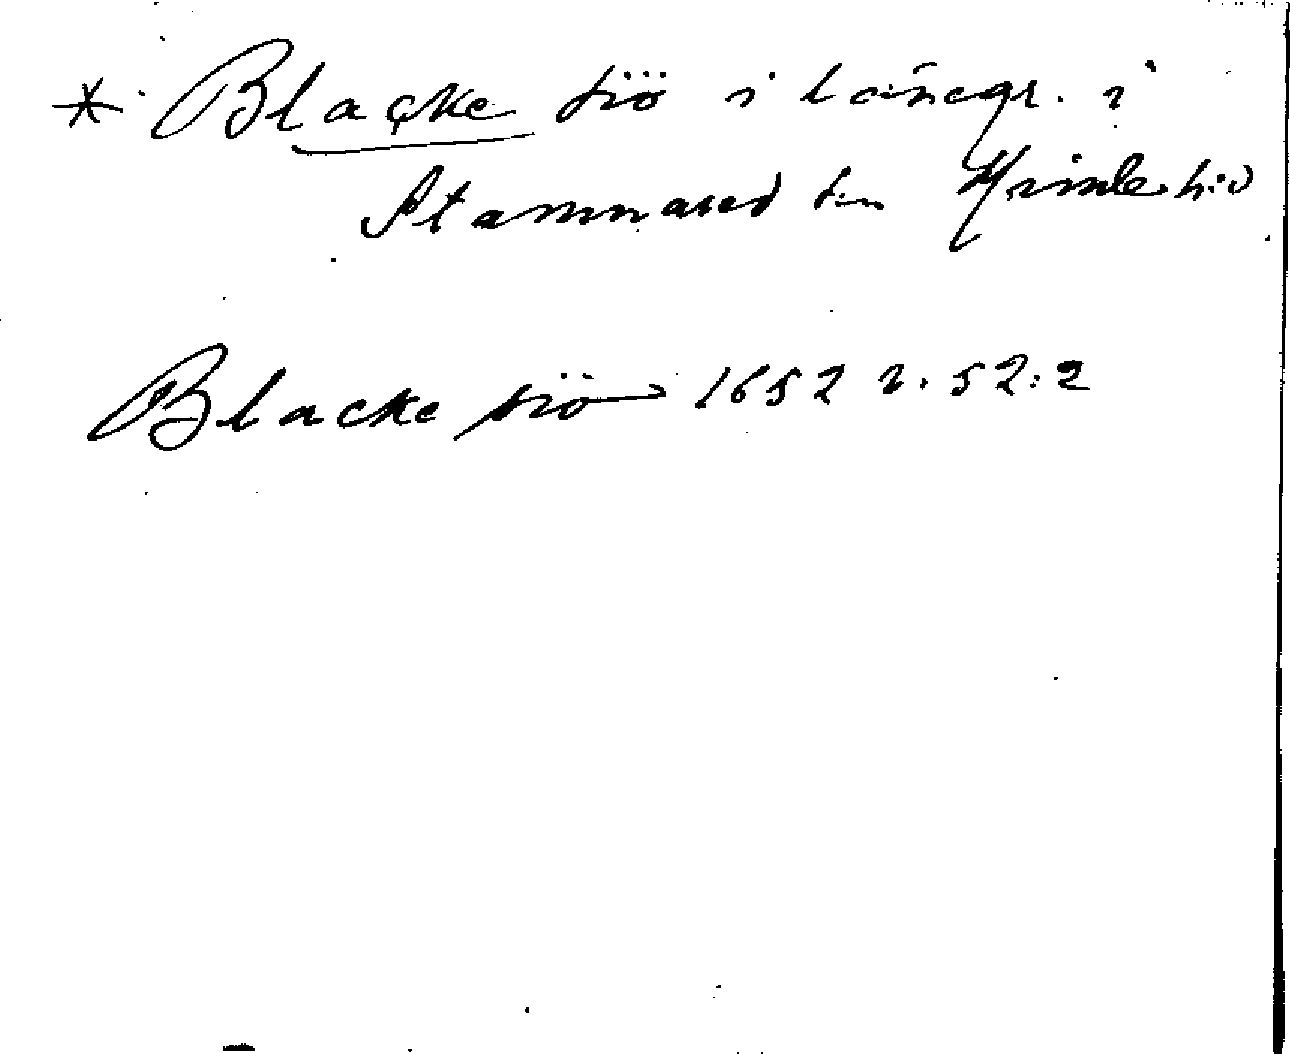 * Blacke siö i länegr. i
Stamnared sn Himle hd
Blacke siö 1652 r. 52:2